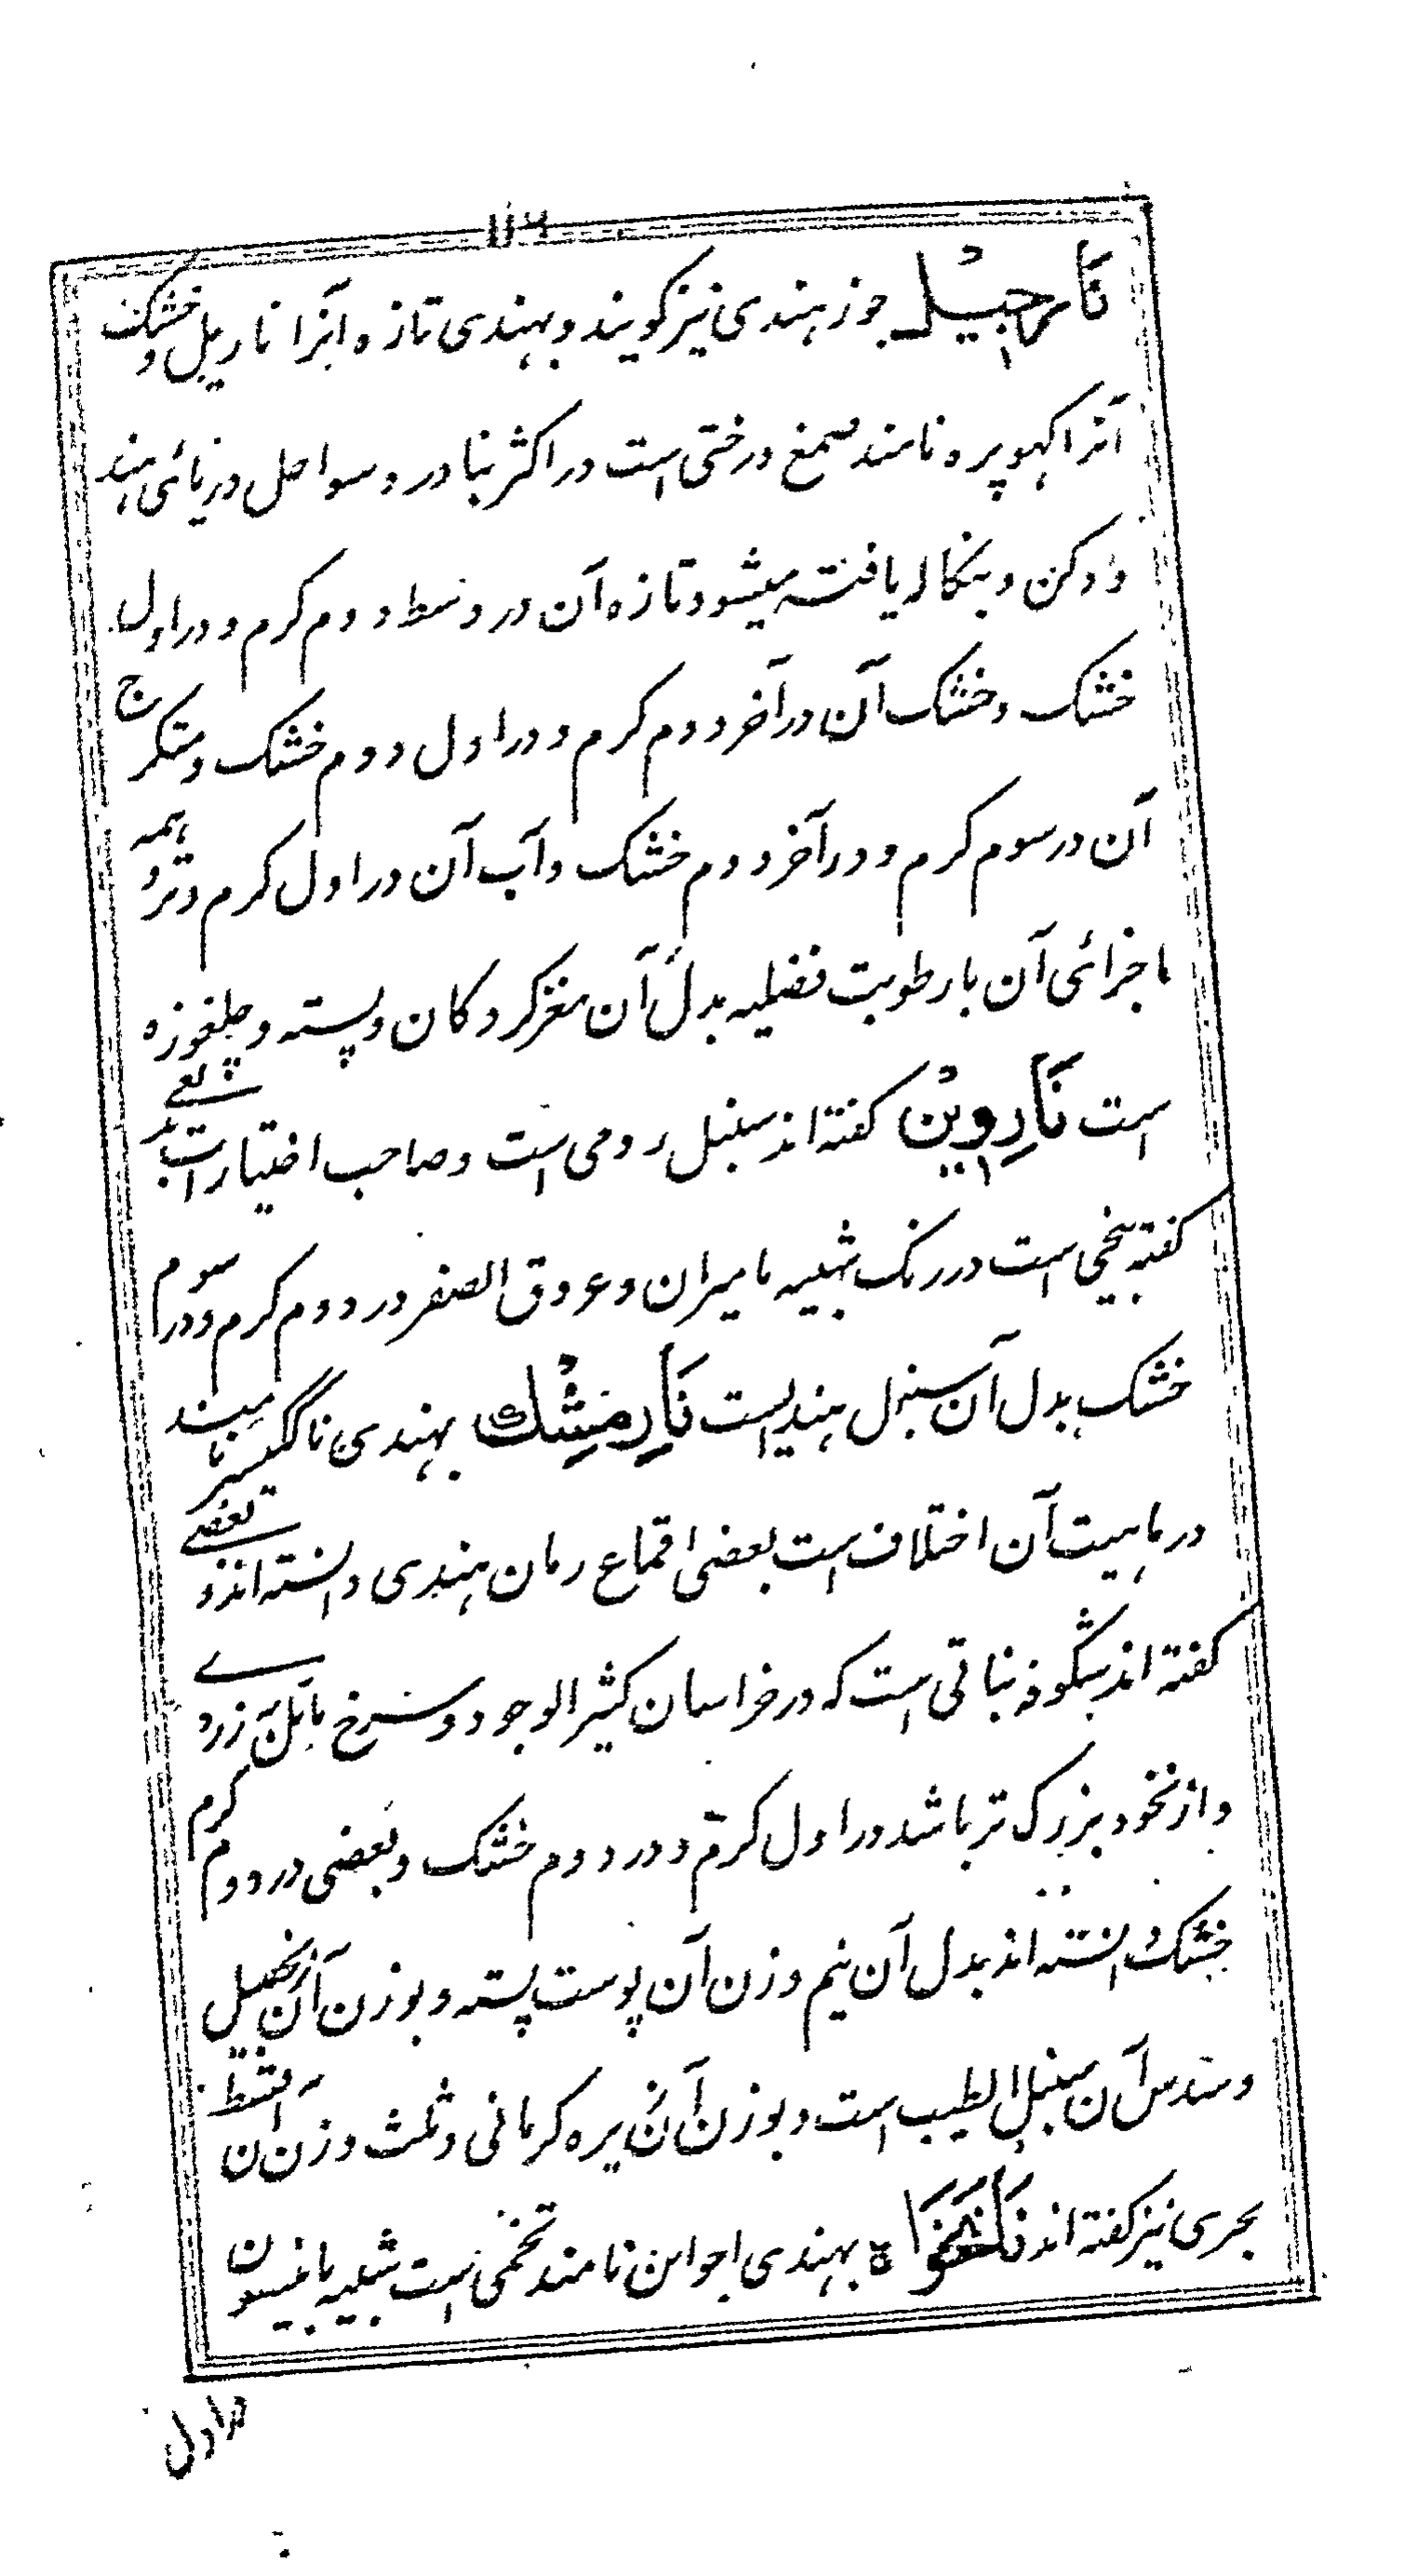 ۱۱۶
نارجیل جوز ہندی نیز گویند و بہندی تازہ آنرا ناریل و خشک
آنرا کہوپرہ نامند صمغ درختی است در اکثر بنادر و سواحل دریائی ہند
و دکن و بنگالہ یافتہ میشود تازہ آن در وسط دوم گرم و در اول
خشک و خشک آن در آخر دوم گرم و در اول دوم خشک و متکرج
آن در سوم گرم و در آخر دوم خشک و آب آن در اول گرم و تر و ہمہ
اجزائی آن با رطوبت فضلیہ بدل آن مغز گردکان و پستہ و چلغوزہ
است ناروین گفتہ اند سنبل رومی است و صاحب اختیارات بدیعے
گفتہ بیخی است در رنگ شبیہ مامیران و عروق الصفر در دوم گرم و در سوم
خشک بدل آن سنبل ہندیست نارمشک بہندی ناگکیسر نامیند
در ماہیت آن اختلاف است بعضی اقماع رمان ہندی دانستہ اند و بعضے
گفتہ اند شگوفہ نباتی است کہ در خراسان کثیر الوجود و سرخ مائل بزردے
و از نخود بزرگ تر باشد در اول گرم و در دوم خشک و بعضی در دوم گرم
خشک دانستہ اند بدل آن نیم وزن آن پوست پستہ و بوزن آن زنجبیل
و سدس آن سنبل الطیب است و بوزن آن زیرہ کرمانی و ثلث وزن آن قسط
بحری نیز گفتہ اند نانخواہ بہندی اجواین نامند تخمی است شبیہ بانیسون
در اول